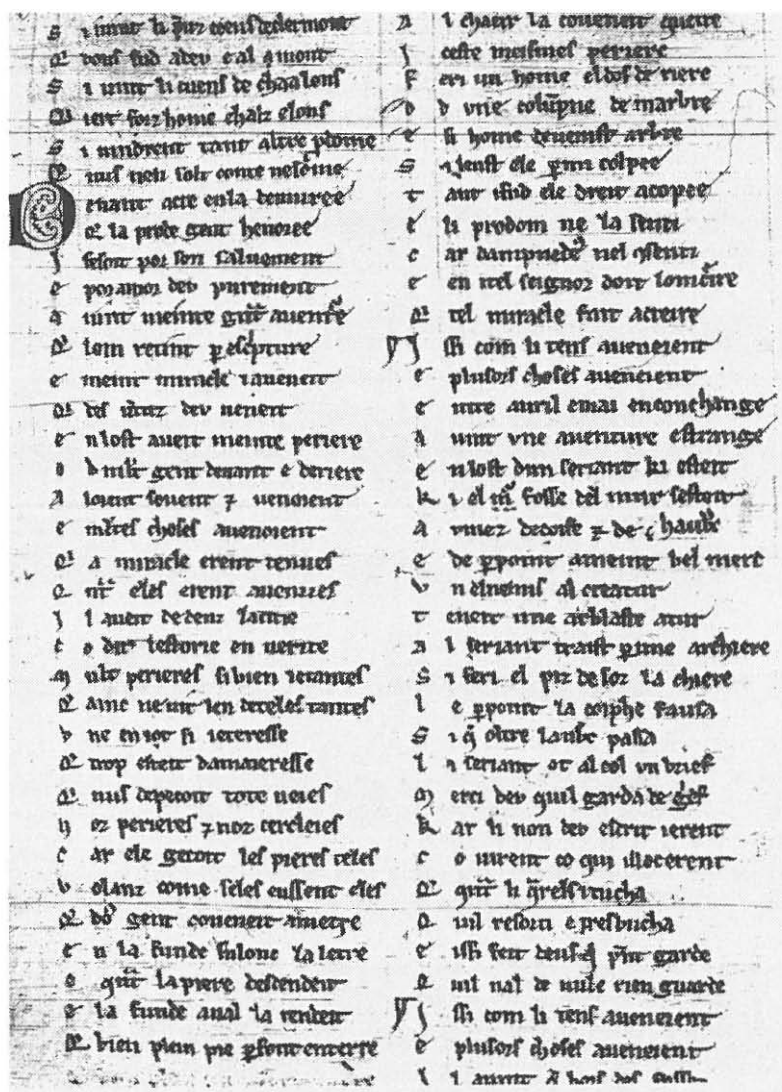 S i uint li quens de clermont
Q
S i uint li cuens de chaalons
Q ui ert forz home e halz e lons
S i uindrent tant altre pdome
Q nuls nen solt conte ne some
D euant acre en la
Q la prode gent henoree
f esoit por son saluement
e por amor deu purement
a uint meinte gnt auenture
Q lom retint p escpture
e meint miracle i aueneit
Q des uertuz deu ueneit
e n lost aueit meinte periere
o u mlt gent deuant e deriere
A loient souent 7 uenoient
e mltes choses auenoient
Q a miracle erent tenues
Q nt eles erent auenues
I l aueit dedenz la cite
c o dit lestorie en uerite
M ult perieres si bien ietantes
Q ainc ne uit len de teles tantes
v ne en iot si ieteresse
Q trop esteit damaieresse
Q nus depecoit tote ueies
N oz perieres 7 noz cercleies
C ar ele getoit les pieres teles
v olanz come seles eussent eles
Q dous gent coueneit a metre
e n la funde sulonc la letre
e qnt la piere descendeit
e la funde aual la rendeit
Q bien plein pie p font en terre
A l chaeir la coueneit querre
I ceste meismes periere
F eri un home el dos deriere
D vne columpne de marbre
e si home deuenist arbre
S i leust ele parmi colpee
T ant i fud ele dreit acopee
e li prodom ne la senti
C ar dampnedeu nel csenti
e en itel seignor doit lom crere
Q tel miracle fait a creire
I ssi com li tens auenerent
e plusors choses aueneient
e ntre auril e mai en con change
A uint vne auenture estrange
e n lost dun seriant ki esteit
k i el mi fosse del mur sesteit
A rmez de coife 7 de hauberc
e de ppoint a meint bel merc
v n des enemis al creatur
T eneit une arblaste a tur
A l seriant traist p une archiere
S i feri el piz desoz la chiere
L e ppoint la coiphe fausa
S i q oltre lauberc passa
L i seriant ot al col vn brief
M erci deu quil garda de gref
k ar li non deu escrit i erent
c o uirent co qui illoc erent
Q qnt li qrels i tucha
Q uil resorti e presbucha
e issi feit deus q prent garde
Q uil nat de nule rien guarde
I ssi com li tens aueneient
e plusors choses aueneient